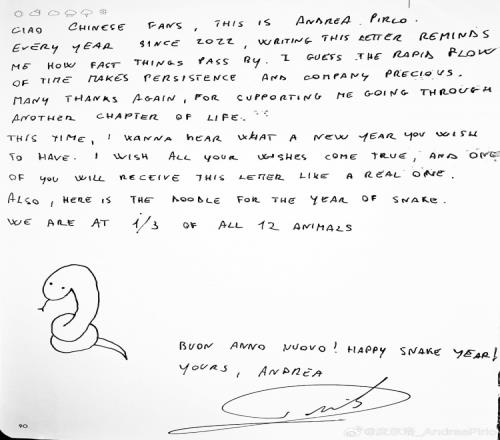 CIAO CHINESE FANS, THIS IS ANDREA PIRLO.
EVERY YEAR SINCE 2022, WRITING THIS LETTER REMINDS
ME HOW FAST THINGS PASS BY. I GUESS THE RAPID FLOW
OF TIME MAKES PERSISTENCE AND COMPANY PRECIOUS.
MANY THANKS AGAIN, FOR SUPPORTING ME GOING THROUGH
ANOTHER CHAPTER OF LIFE.
THIS TIME, I WANNA HEAR WHAT A NEW YEAR YOU WISH
TO HAVE. I WISH ALL YOUR WISHES COME TRUE, AND ONE
OF YOU WILL RECEIVE THIS LETTER LIKE A REAL ONE.
ALSO, HERE IS THE DOODLE FOR THE YEAR OF SNAKE.
WE ARE AT 1/3 OF ALL 12 ANIMALS
BUON ANNO NUOVO! HAPPY SNAKE YEAR!
YOURS, ANDREA
90
@皮尔洛_AndreaPirlo